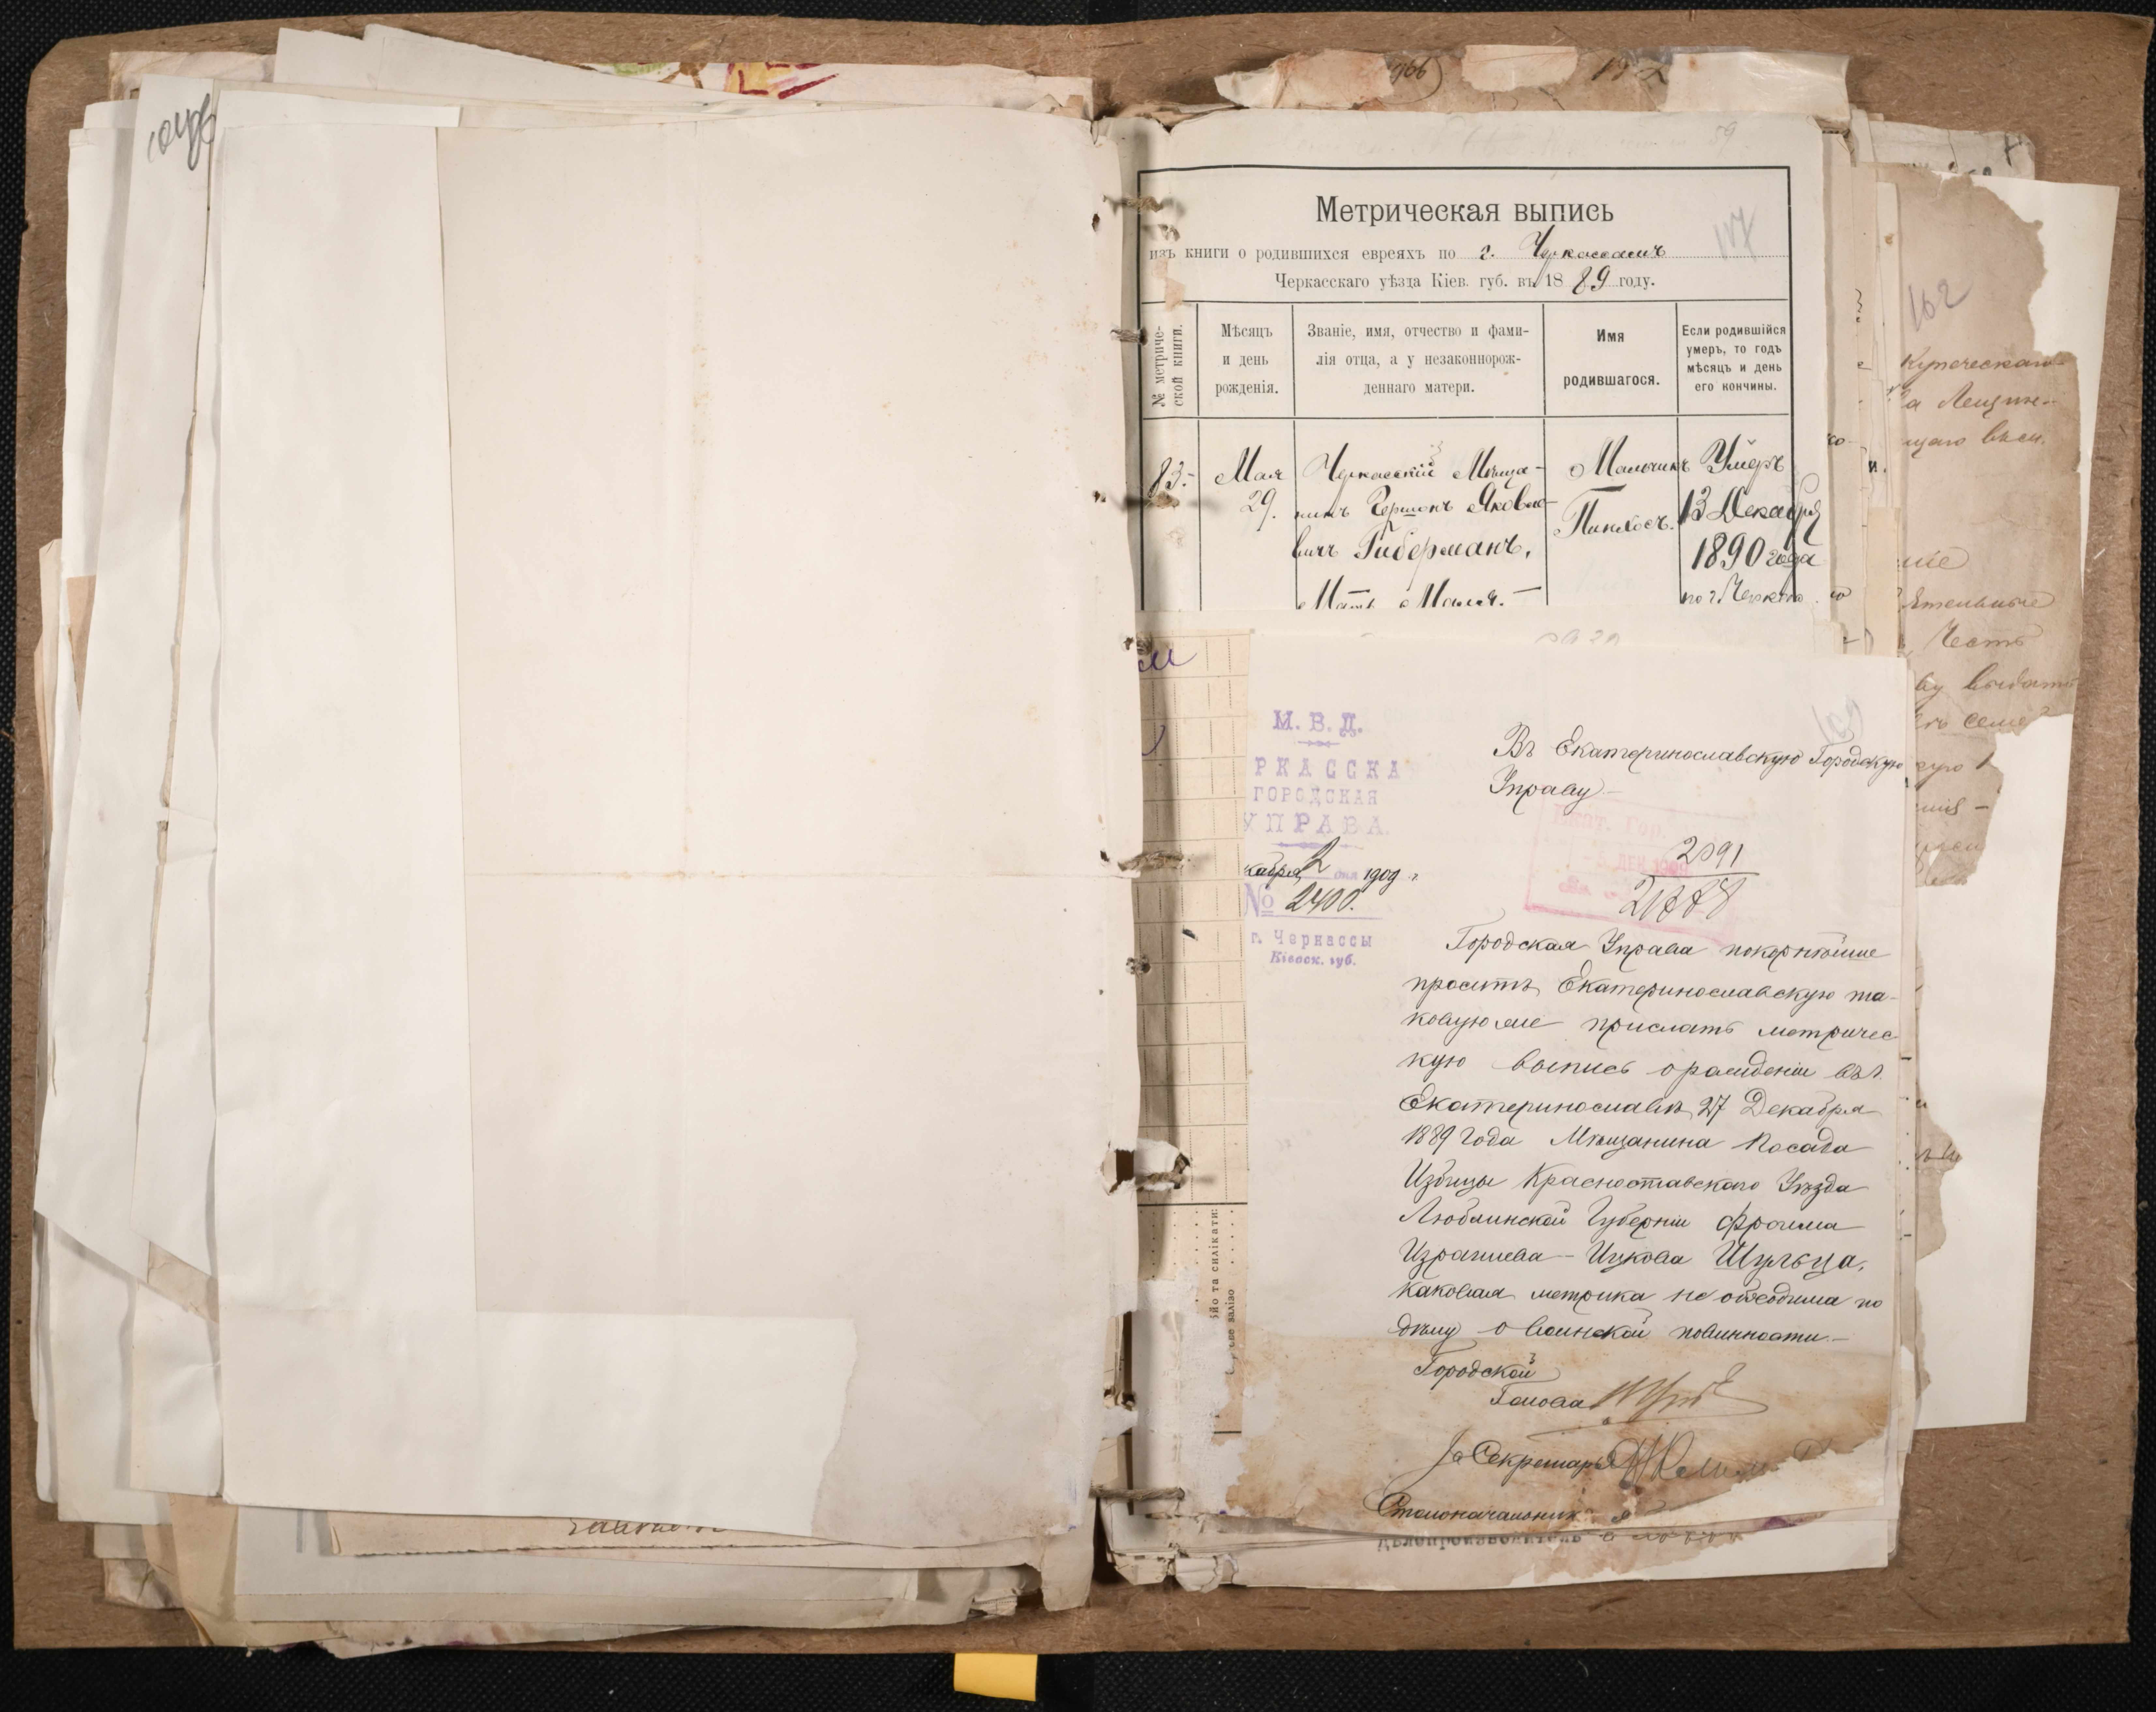 966
59
Метрическая выпись
117
изъ книги о родившихся евреяхъ по г. Черкассамъ
Черкасскаго уѣзда Кіев. губ. въ 1889 году.
№ метриче-
ской книги.
Мѣсяцъ
и день
рожденія.
Званіе, имя, отчество и фами-
лія отца, а у незаконнорож-
деннаго матери.
Имя
родившагося.
Если родившійся
умеръ, то годъ
мѣсяцъ и день
его кончины.
83.
Мая
29.
Черкасскій Мѣща-
нинъ Гершонъ Яковле-
вичъ Гиберманъ,
Мать Маля.
Мальчикъ
Пинхосъ.
Умеръ
13 Декабря
1890 года
по г.
М. В. Д.
РКАССКА
ГОРОДСКАЯ
УПРАВА.
кабря 2 дня 1909 г.
№ 2400.
г. Черкассы
Кіевск. губ.
Въ Екатеринославскую Городскую
Управу
Екат. Гор.
ДЕК 1909
2091
Городская Управа покорнѣйше
проситъ Екатеринославскую та-
ковую же прислать метричес-
кую выпись о рожденіи въ г.
Екатеринославѣ 27 Декабря
1889 года Мѣщанина Посада
Избицы Красноставскаго Уѣзда
Люблинской Губерніи Фроима
Израилева-Ицкова Шульца,
каковая метрика необходима по
дѣлу о воинской повинности.
Городской
Голова
За Секретаря
Столоначальникъ
Дѣлопроизводитель
ійо та силікати:
залізо
162
Купеческаго
а
щаго
ніе
Честь
ву выдать
семе